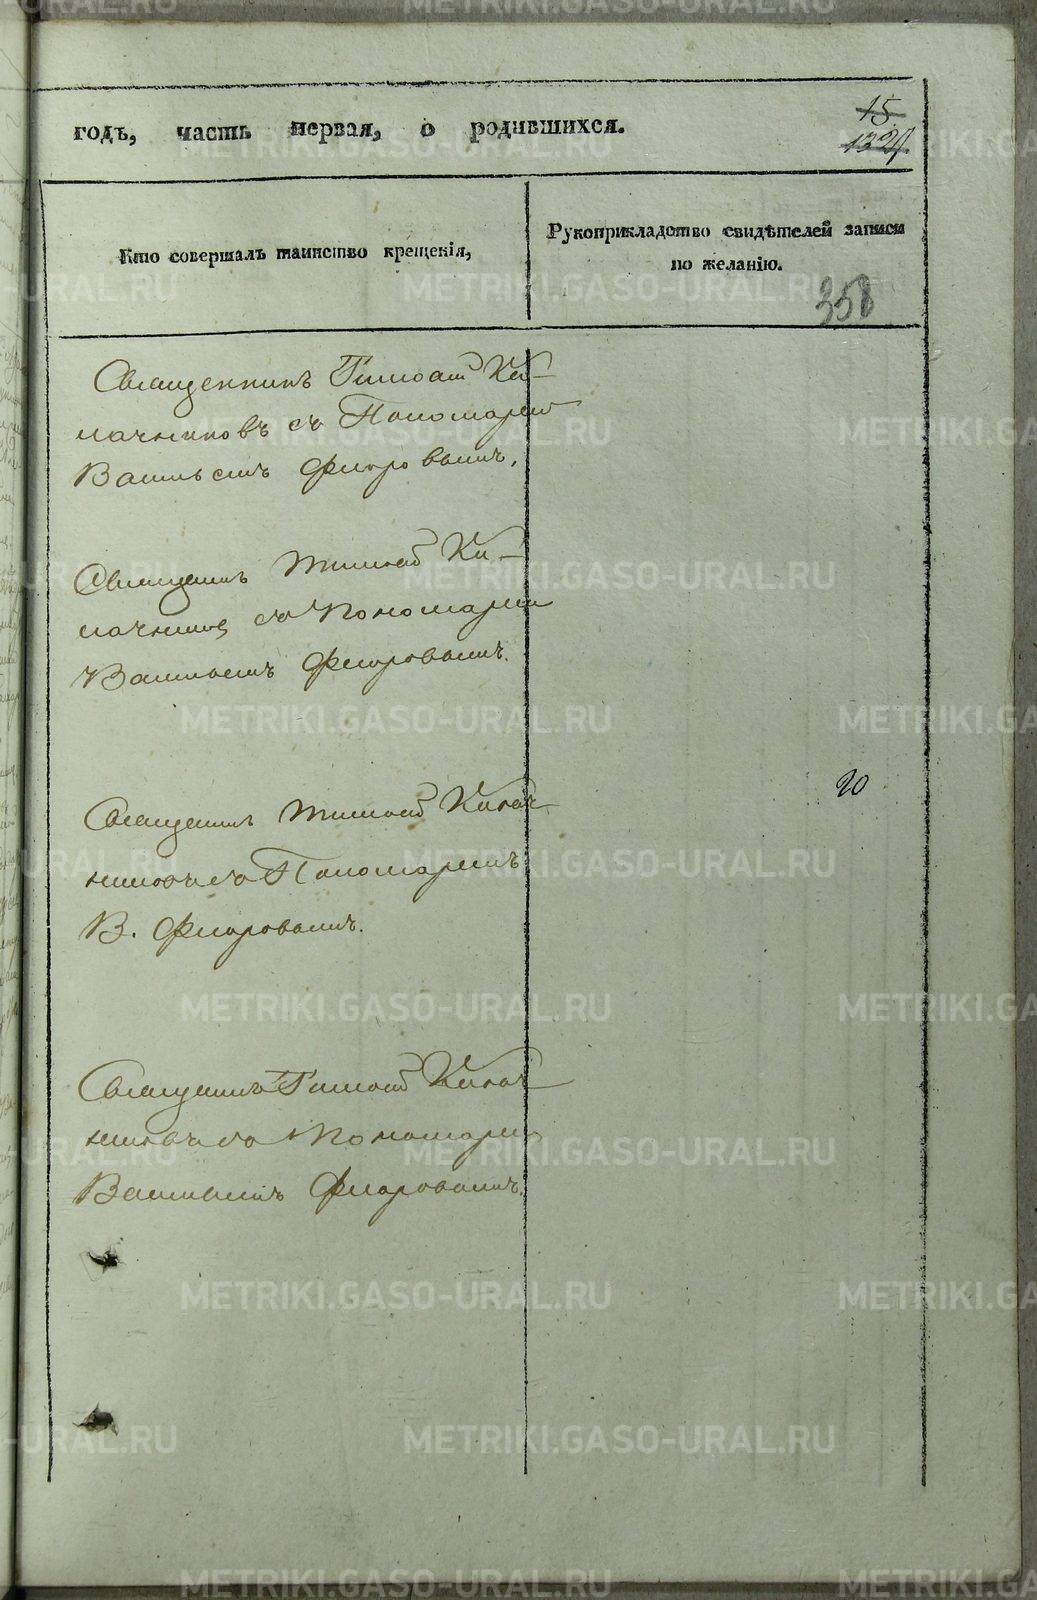 годъ, часть первая, о родившихся.
15.
132
Кто совершалъ таинство крещенія,
Рукоприкладство свидѣтелей записи
по желанію.
358
Священникъ Тимоѳей Ка-
лачниковъ съ Пономаремъ
Васильемъ Флоровымъ.
Священникъ Тимоѳей Ка-
лачниковъ съ Пономаремъ
Васильемъ Флоровымъ.
20
Священникъ Тимоѳей Калач-
никовъ съ Пономаремъ
В. Флоровымъ.
Священникъ Тимоѳей Калач-
никовъ съ Пономаремъ
Васильемъ Флоровымъ.
METRIKI.GASO-URAL.RU